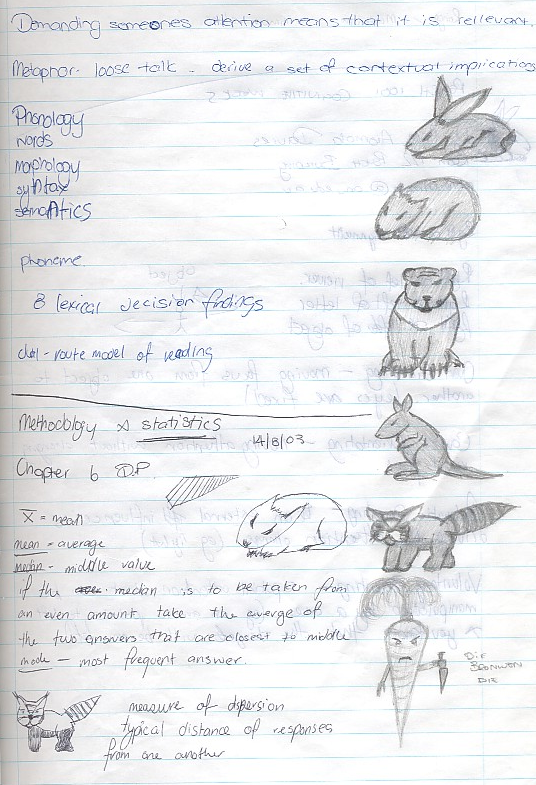 Demanding someones attention means that it is rellevant.
Metaphor - loose talk - derive a set of contextual implications
Phonology
words
morphology
syntax
semantics
phoneme.
8 lexical decision findings
dual - route model of reading
Methodology & statistics
14/8/03
Chapter 6 D.P.
x̄ = mean
mean - average
median - middle value
if the median is to be taken from
an even amount take the averge of
the two answers that are closest to middle
mode - most frequent answer.
DIE
DIE
measure of dispersion
typical distance of responses
from one another